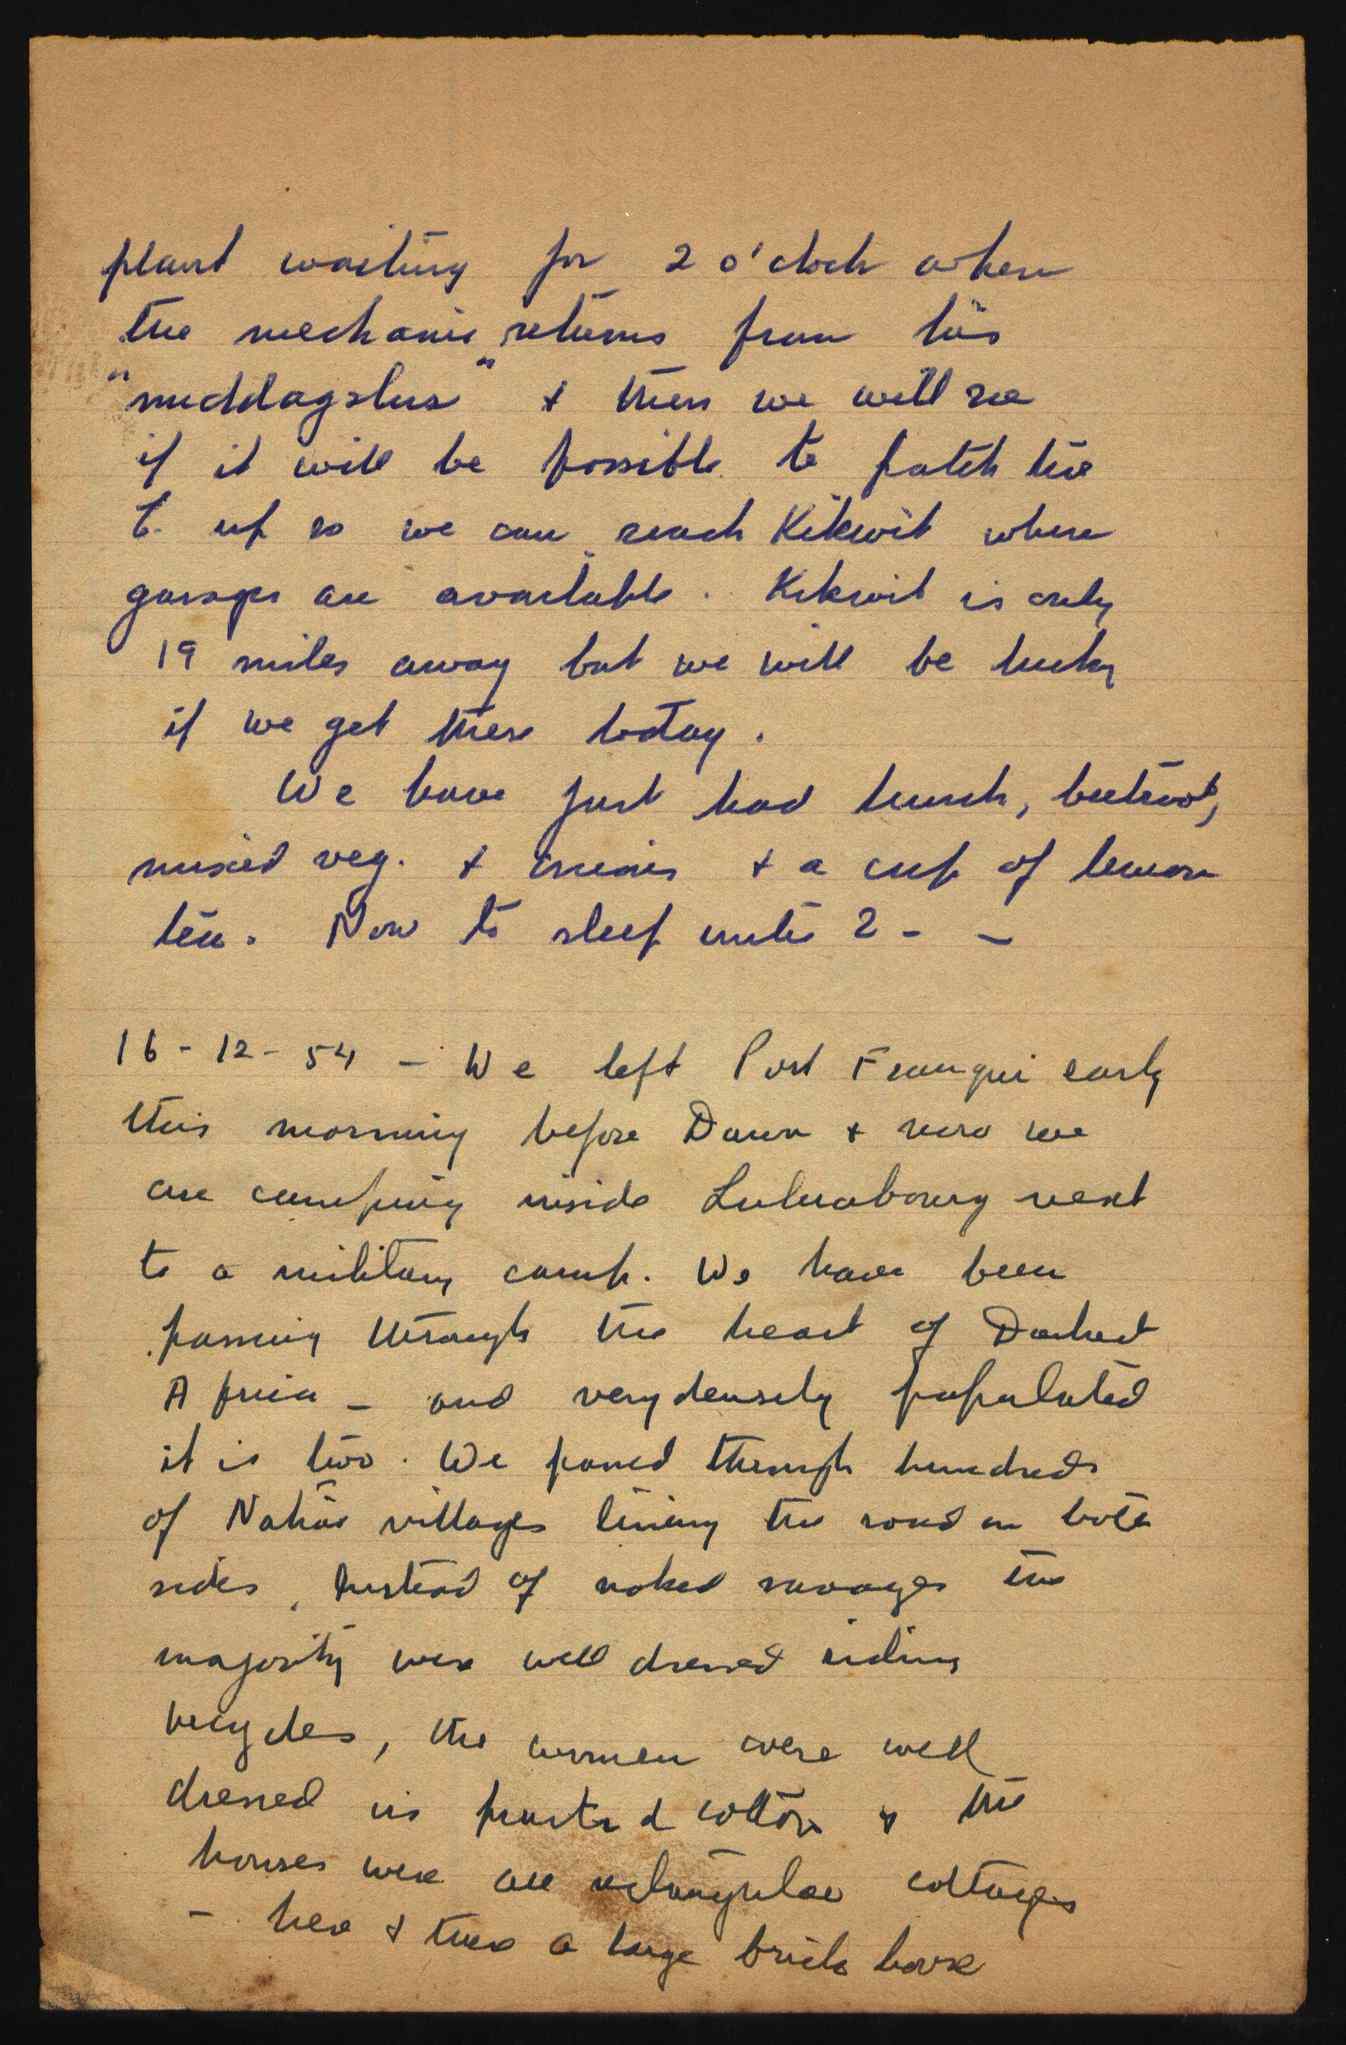 plant waiting for 2 o'clock when
the mechanic returns from his
"middagslus" & then we will see
if it will be possible to patch the
t. up so we can reach Kikwit where
garages are available. Kikwit is only
19 miles away but we will be lucky
if we get there today.
We have just had lunch, beetroot,
mixed veg. & onions & a cup of lemon
tea. Now to sleep until 2 - -
16-12-54 - We left Port Franqui early
this morning before Dawn & now we
are camping inside Luluabourg next
to a military camp. We have been
passing through the heart of Darkest
Africa - and very densely populated
it is too. We passed through hundreds
of Native villages lining the road on both
sides, Instead of naked savages the
majority were well dressed riding
bicycles, the women were well
dressed in printed cotton & the
houses were all rectangular cottages
- here & there a large brick house